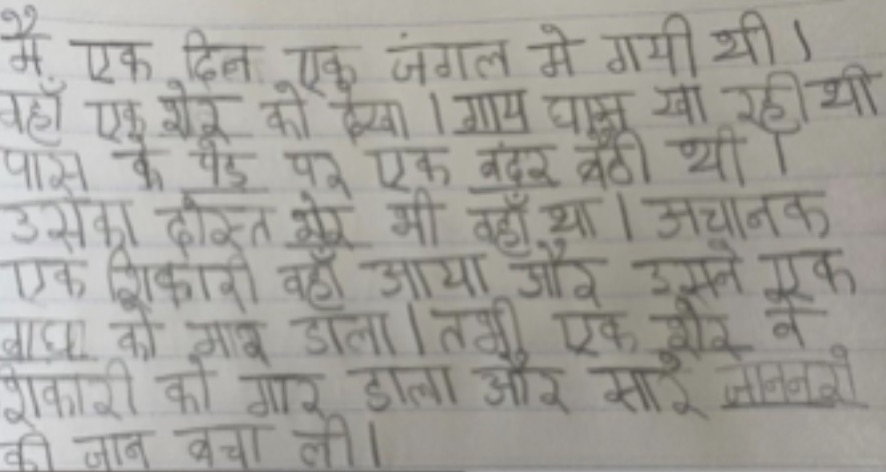 मैं एक दिन एक जंगल मे गयी थी।
वहाँ एक शेर को देखा। गाय घास खा रही थी
पास के पेड पर एक बंदर बैठी थी।
उसका दोस्त शेर भी वहाँ था। अचानक
एक शिकारी वहाँ आया और उसने एक
बाघ को मार डाला। तभी एक शेर ने
शिकारी को मार डाला और सारे
की जान बचा ली।